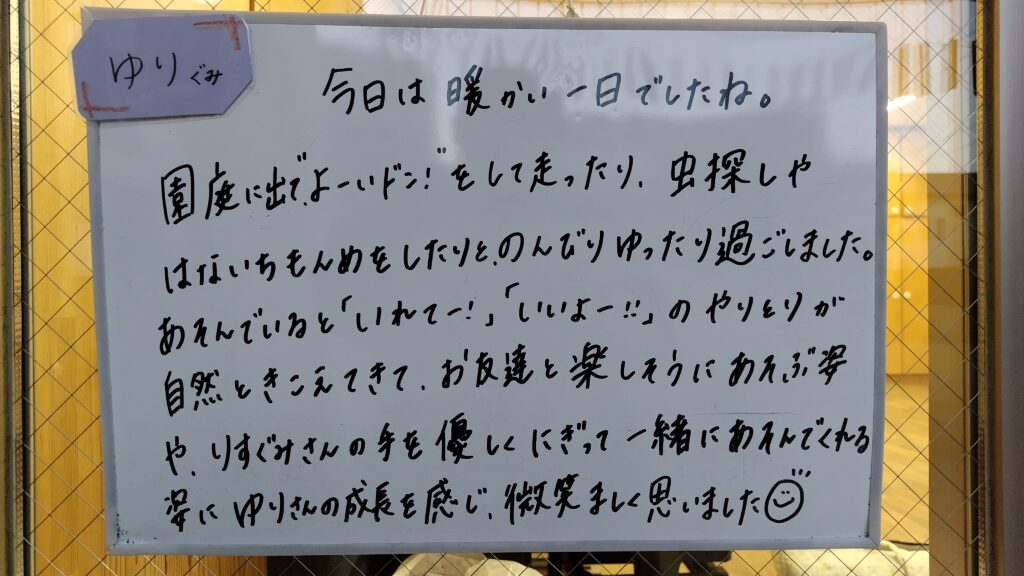 ゆりぐみ
今日は暖かい一日でしたね。
園庭に出て、"よーいドン!"をして走ったり、虫探しや
はないちもんめをしたりと、のんびりゆったり過ごしました。
あそんでいると「いれてー!」「いいよー!!」のやりとりが
自然ときこえてきて、お友達と楽しそうにあそぶ姿
や、りすぐみさんの手を優しくにぎって一緒にあそんでくれる
姿にゆりさんの成長を感じ、微笑ましく思いました